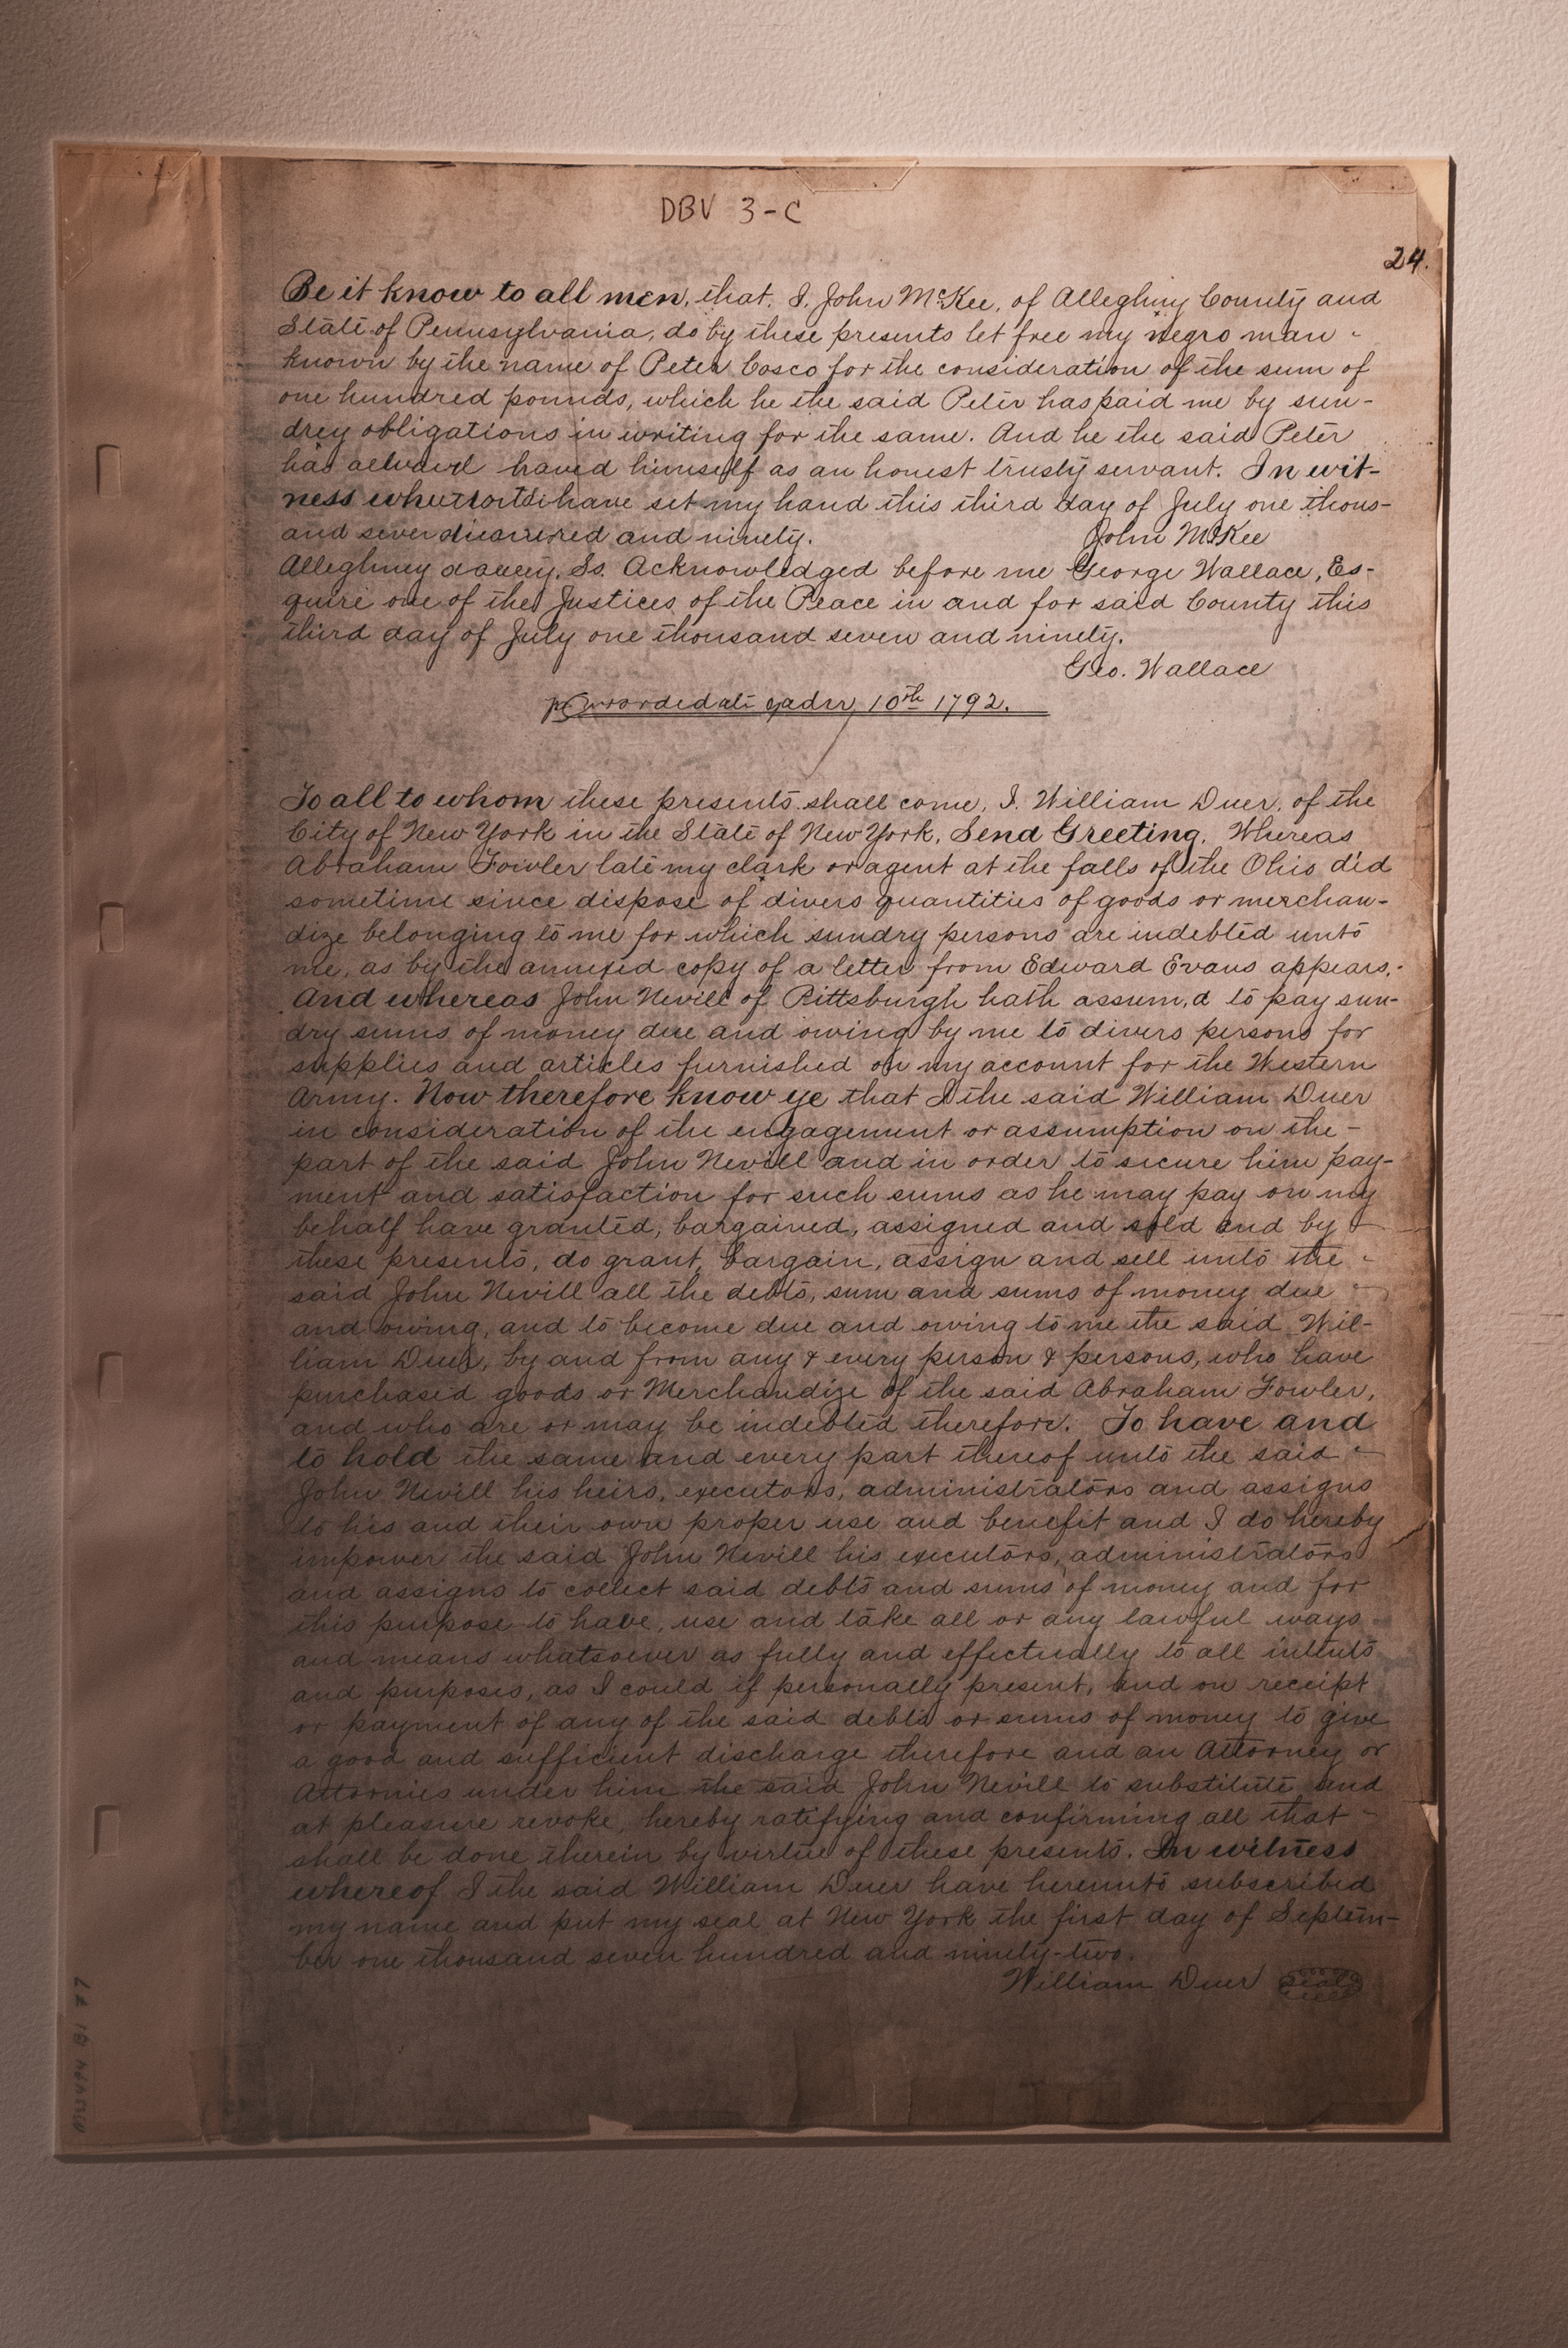 DBV 3-C
24.
Be it know to all men, that. I. John McKee, of Alleghny County and
State of Pennsylvania, do by these presents let free my negro man -
known by the name of Peter Cosco for the consideration of the sum of
one hundred pounds, which he the said Peter has paid me by sun-
drey obligations in writing for the same. And he the said Peter
has haved himself as an honest trusty servant. In wit-
ness have set my hand this third day of July one thous-
and seven and ninety. John McKee
Alleghney Ss. Acknowledged before me George Wallace, Es-
quire one of the Justices of the Peace in and for said County this
third day of July one thousand seven and ninety.
Geo. Wallace
10th 1792.
To all to whom these presents shall come, I. William Duer, of the
City of New York in the State of New York, Send Greeting. Whereas
Abraham Fowler late my clark or agent at the falls of the Ohio did
sometime since dispose of divers quantities of goods or merchan-
dize belonging to me for which sundry persons are indebted unto
me, as by the annexed copy of a letter from Edward Evans appears,-
And whereas John Nevill of Pittsburgh hath assum,d to pay sun-
dry sums of money due and owing by me to divers persons for
supplies and articles furnished on my account for the Western
Army. Now therefore know ye that I the said William Duer
in consideration of the engagement or assumption on the -
part of the said John Nevill and in order to secure him pay-
ment and satisfaction for such sums as he may pay on my
behalf have granted, bargained, assigned and sold and by -
these presents, do grant, bargain, assign and sell unto the -
said John Nevill all the debts, sum and sums of money due -
and owing, and to become due and owing to me the said Wil-
liam Duer, by and from any & every person & persons, who have
purchased goods or Merchandize of the said Abraham Fowler,
and who are or may be indebted therefore. To have and
to hold the same and every part thereof unto the said -
John Nevill his heirs, executors, administrators and assigns
to his and their own proper use and benefit and I do hereby
impower the said John Nevill his executors, administrators
and assigns to collect said debts and sums of money and for
this purpose to have, use and take all or any lawful ways -
and means whatsoever as fully and effectually to all intents
and purposes, as I could if personally present, and on receipt
or payment of any of the said debts or sums of money to give
a good and sufficient discharge therefore and an Attorney or
Attornies under him the said John Nevill to substitute and
at pleasure revoke, hereby ratifying and confirming all that -
shall be done therein by virtue of these presents. In witness
whereof I the said William Duer have hereunto subscribed
my name and put my seal at New York the first day of Septem-
ber one thousand seven hundred and ninety-two.
William Duer seal